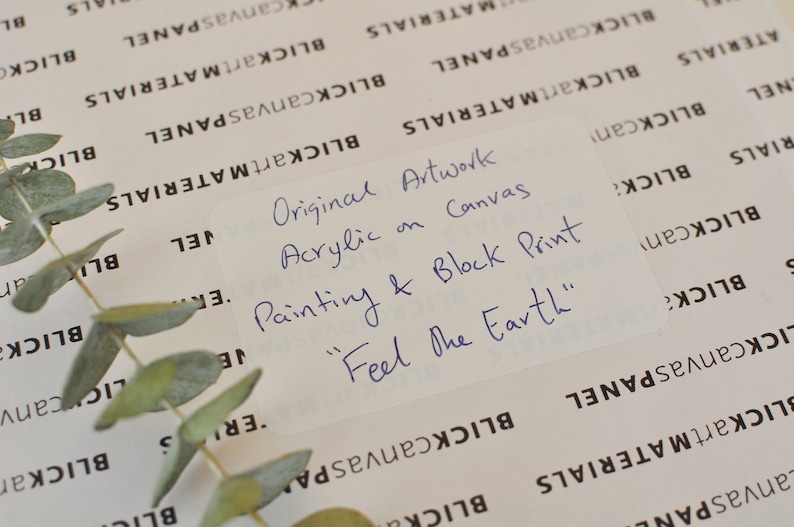 BLICKcanvasPANEL
BLICKartMATERIALS
BLICKcanvasPANEL
BLICKartMATERIALS
BLICKcanvasPANEL
BLICKartMATERIALS
Original Artwork
Acrylic on Canvas
Painting & Block Print
"Feel the Earth"
BLICKcanvasPANEL
BLICKartMATERIALS
BLICKcanvasPANEL